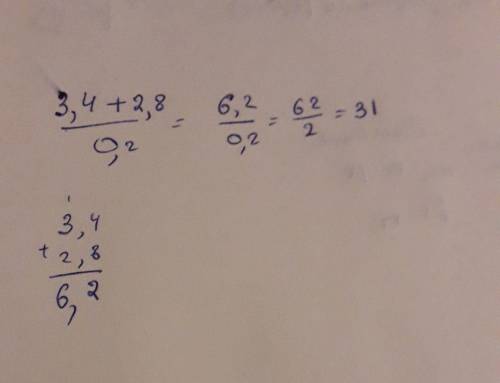 3,4 + 2,8 / 0,2 = 6,2 / 0,2 = 62 / 2 = 31
1
3,4
+ 2,8
6,2